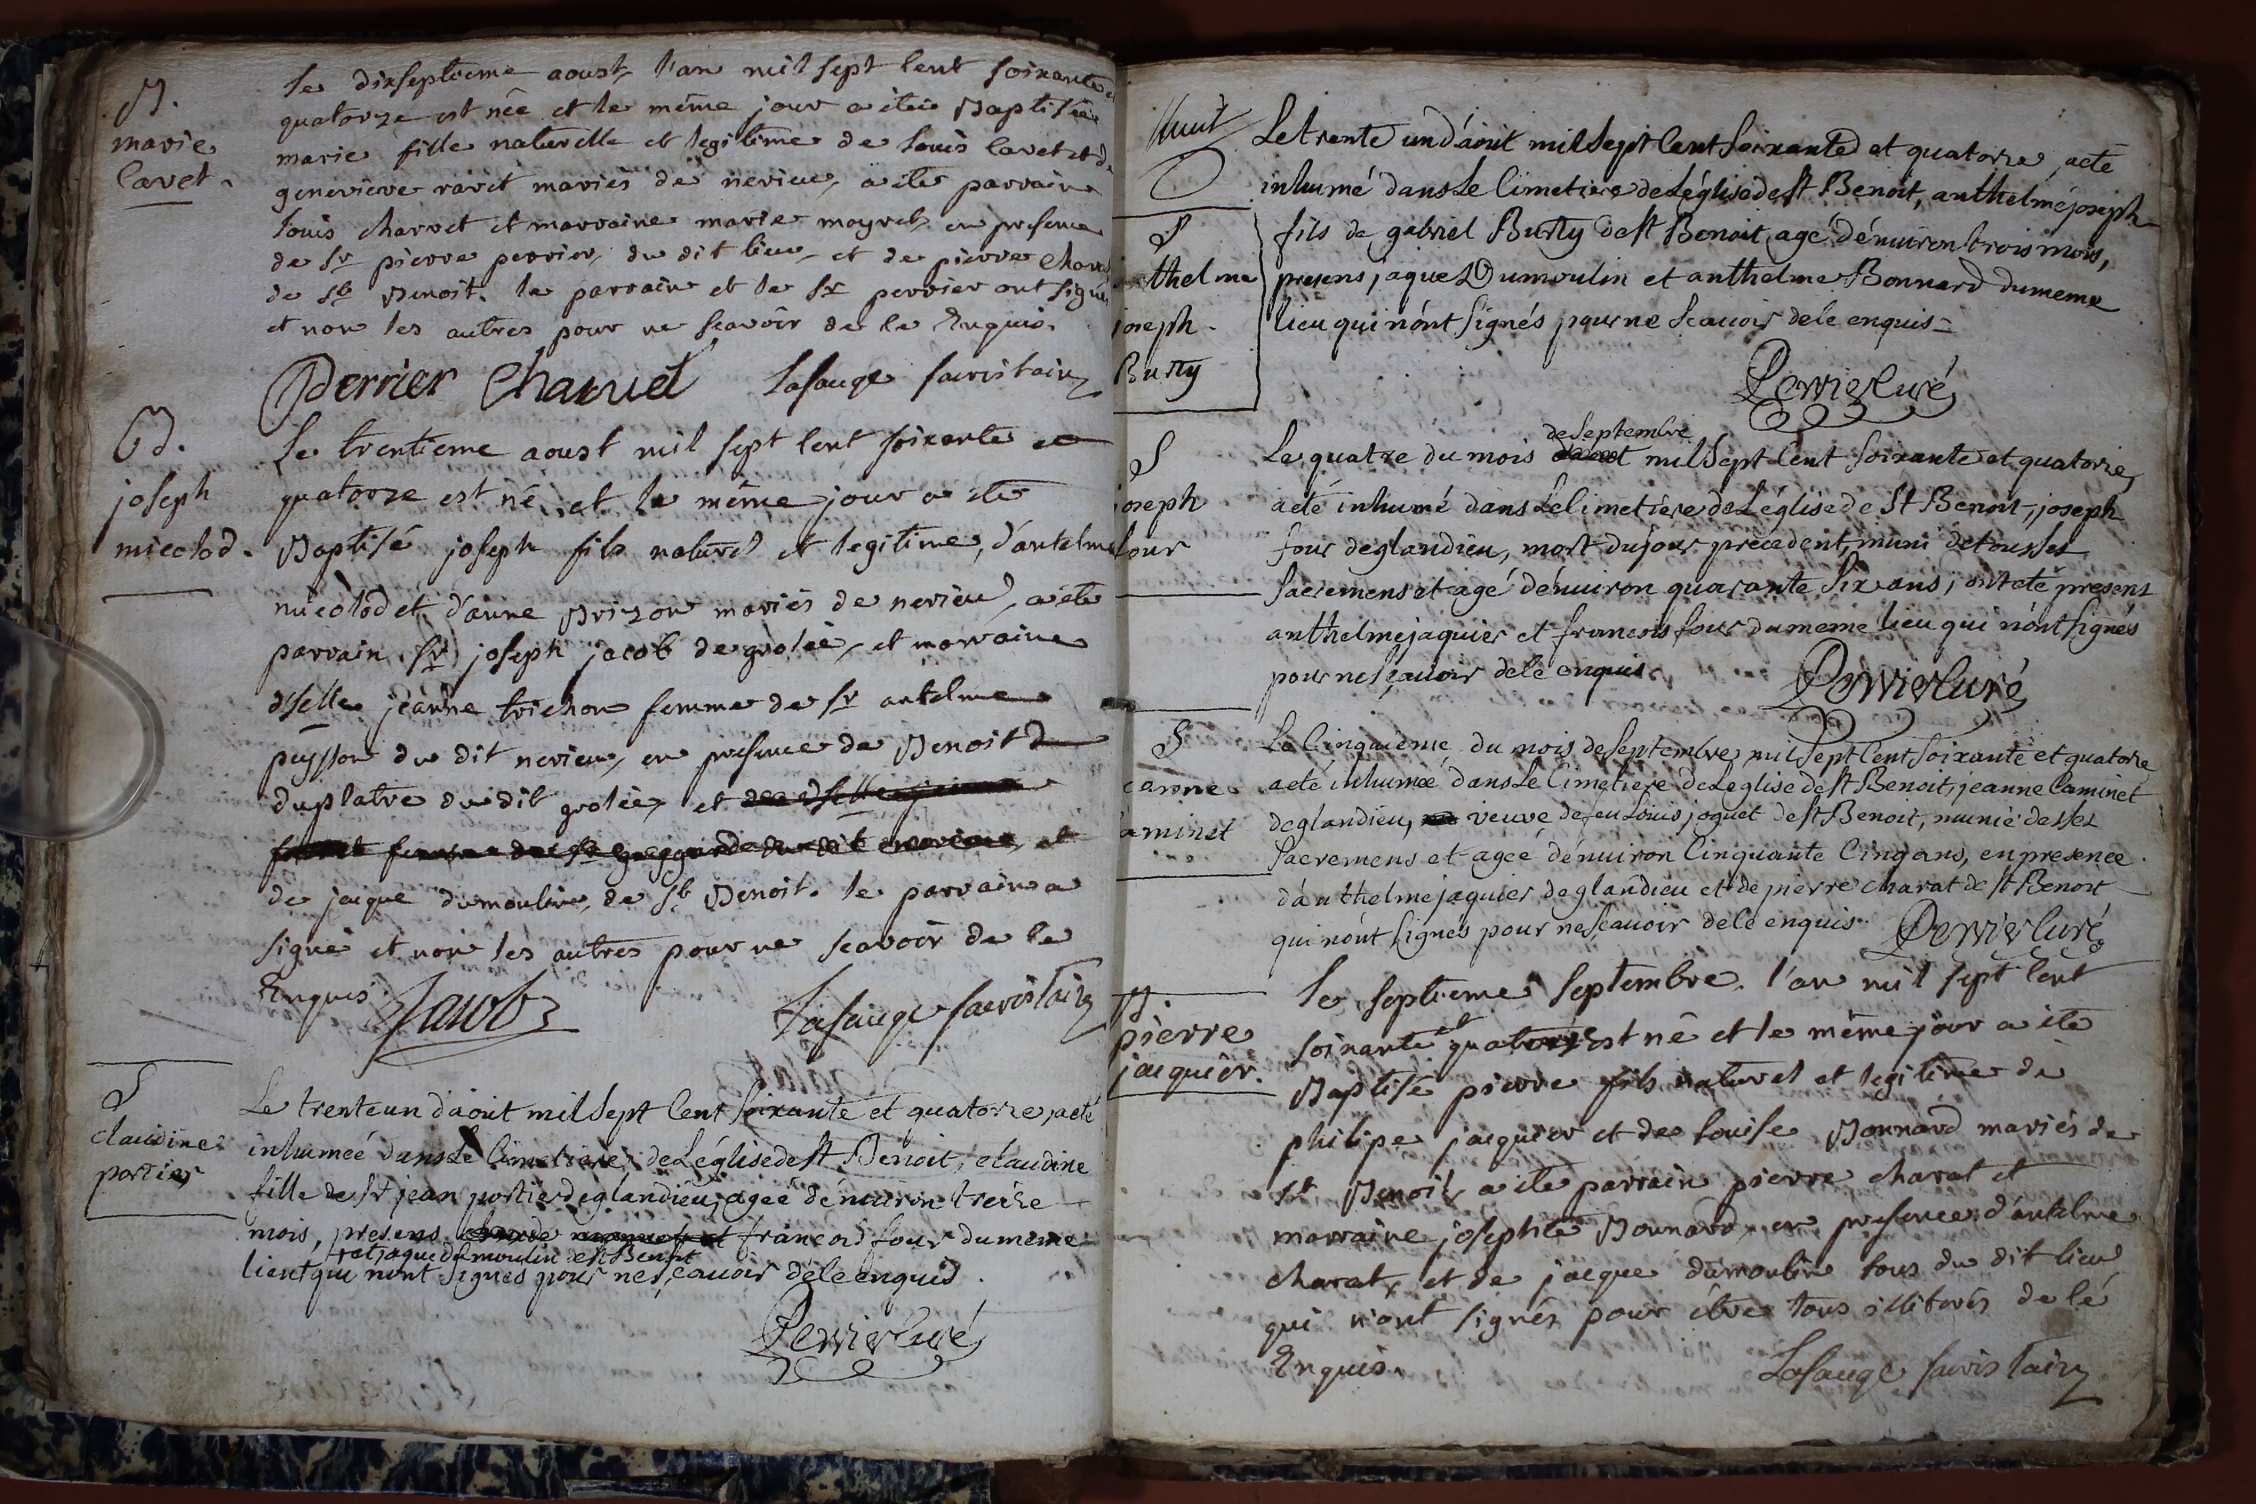 B.
marie
Cavet.
le dixseptieme aoust, l'an mil sept Cent soixante et
quatorze est née et le même jour a été Baptisée
marie fille naturelle et legitime de louis Cavet et de
genevieve ravet mariés de nerieu, a été parrain
louis charvet et marraine marie mayret en presence
de Sr pierre perrier, du dit lieu, et de pierre
de St Benoit. le parrain et le Sr perrier ont signés
et non les autres pour ne sçavoir de ce Enquis.
Perrier Charvet Lasauge sacristain
Bd.
joseph
micolod.
Le trentieme aoust mil sept Cent soixante et
quatorze est né, et le même jour a été
Baptisé joseph fils naturel et legitime, d'antelme
micolod et d'anne Brizon mariés de nerieu, a été
parrain Sr joseph jacob de grolée, et marraine
dselle jeanne trichon femme de Sr antelme
peysson du dit nerieu, en presence de Benoit
duplatre du dit grolée, et
et
de jaque dumoulin, de St Benoit. le parrain a
signé et non les autres pour ne scavoir de ce
Enquis.
Jacob Lasauge sacristain
S
claudine
portier
Le trente un d'aout mil sept Cent soixante et quatorze, a eté
inhumeé dans Le Cimetiere de L'église de St Benoit, claudine
fille de Sr jean portier de glandieu, ageé d'énuiron treize
mois, presens françois four du meme
et jaque dumoulin de st Benoit
lieu qui n'ont signés pour ne sçauoir de ce enquis.
Perrier Curé
huit
S
anthelme
joseph
Burty
Le trente un d'aout mil sept Cent soixante et quatorze, a eté
inhumé dans Le Cimetiere de L'église de St Benoit, anthelme joseph
fils de gabriel Burty de st Benoit, agé d'énuiron trois mois,
presens, jaque Dumoulin et anthelme Bonnard du meme
lieu qui n'ont signés pour ne scauoir de ce enquis
Perrier Curé
S
joseph
four
de septembre
Le quatre du mois mil sept Cent soixante et quatorze,
a eté inhumé dans Le Cimetiere de L'église de St Benoit, joseph
four de glandieu, mort du jour précedent, muni de tous ses
sacremens et agé d'énuiron quarante six ans; ont eté presens
anthelme jaquier et françois four du meme lieu qui n'ont signés
pour ne sçauoir de ce enquis
Perrier Curé
S
jeanne
Caminet
Le Cinquieme du mois de septembre mil sept Cent soixante et quatorze
a eté inhumeé dans Le Cimetiere de L'eglise de st Benoit, jeanne Caminet
de glandieu, veuve de feu Louis joguet de st Benoit, munie de ses
sacremens et ageé d'énuiron Cinquante Cinq ans, en presence
d'anthelme jaquier de glandieu et de pierre charat de st Benoit
qui n'ont signés pour ne scauoir de ce enquis. Perrier Curé
B.
pierre
jacquier.
Le septieme septembre. l'an mil sept Cent
soixante et quatorze est né et le même jour a été
Baptisé pierre fils naturel et legitime de
philipe jacquier et de louise Bonnard mariés de
st Benoit, a été parrain pierre charat et
marraine josephte Bonnard, en presence d'antelme
charat, et de jacque dumoulin tous du dit lieu
qui n'ont signés pour être tous illiterés de ce
Enquis.
Lasauge sacristain